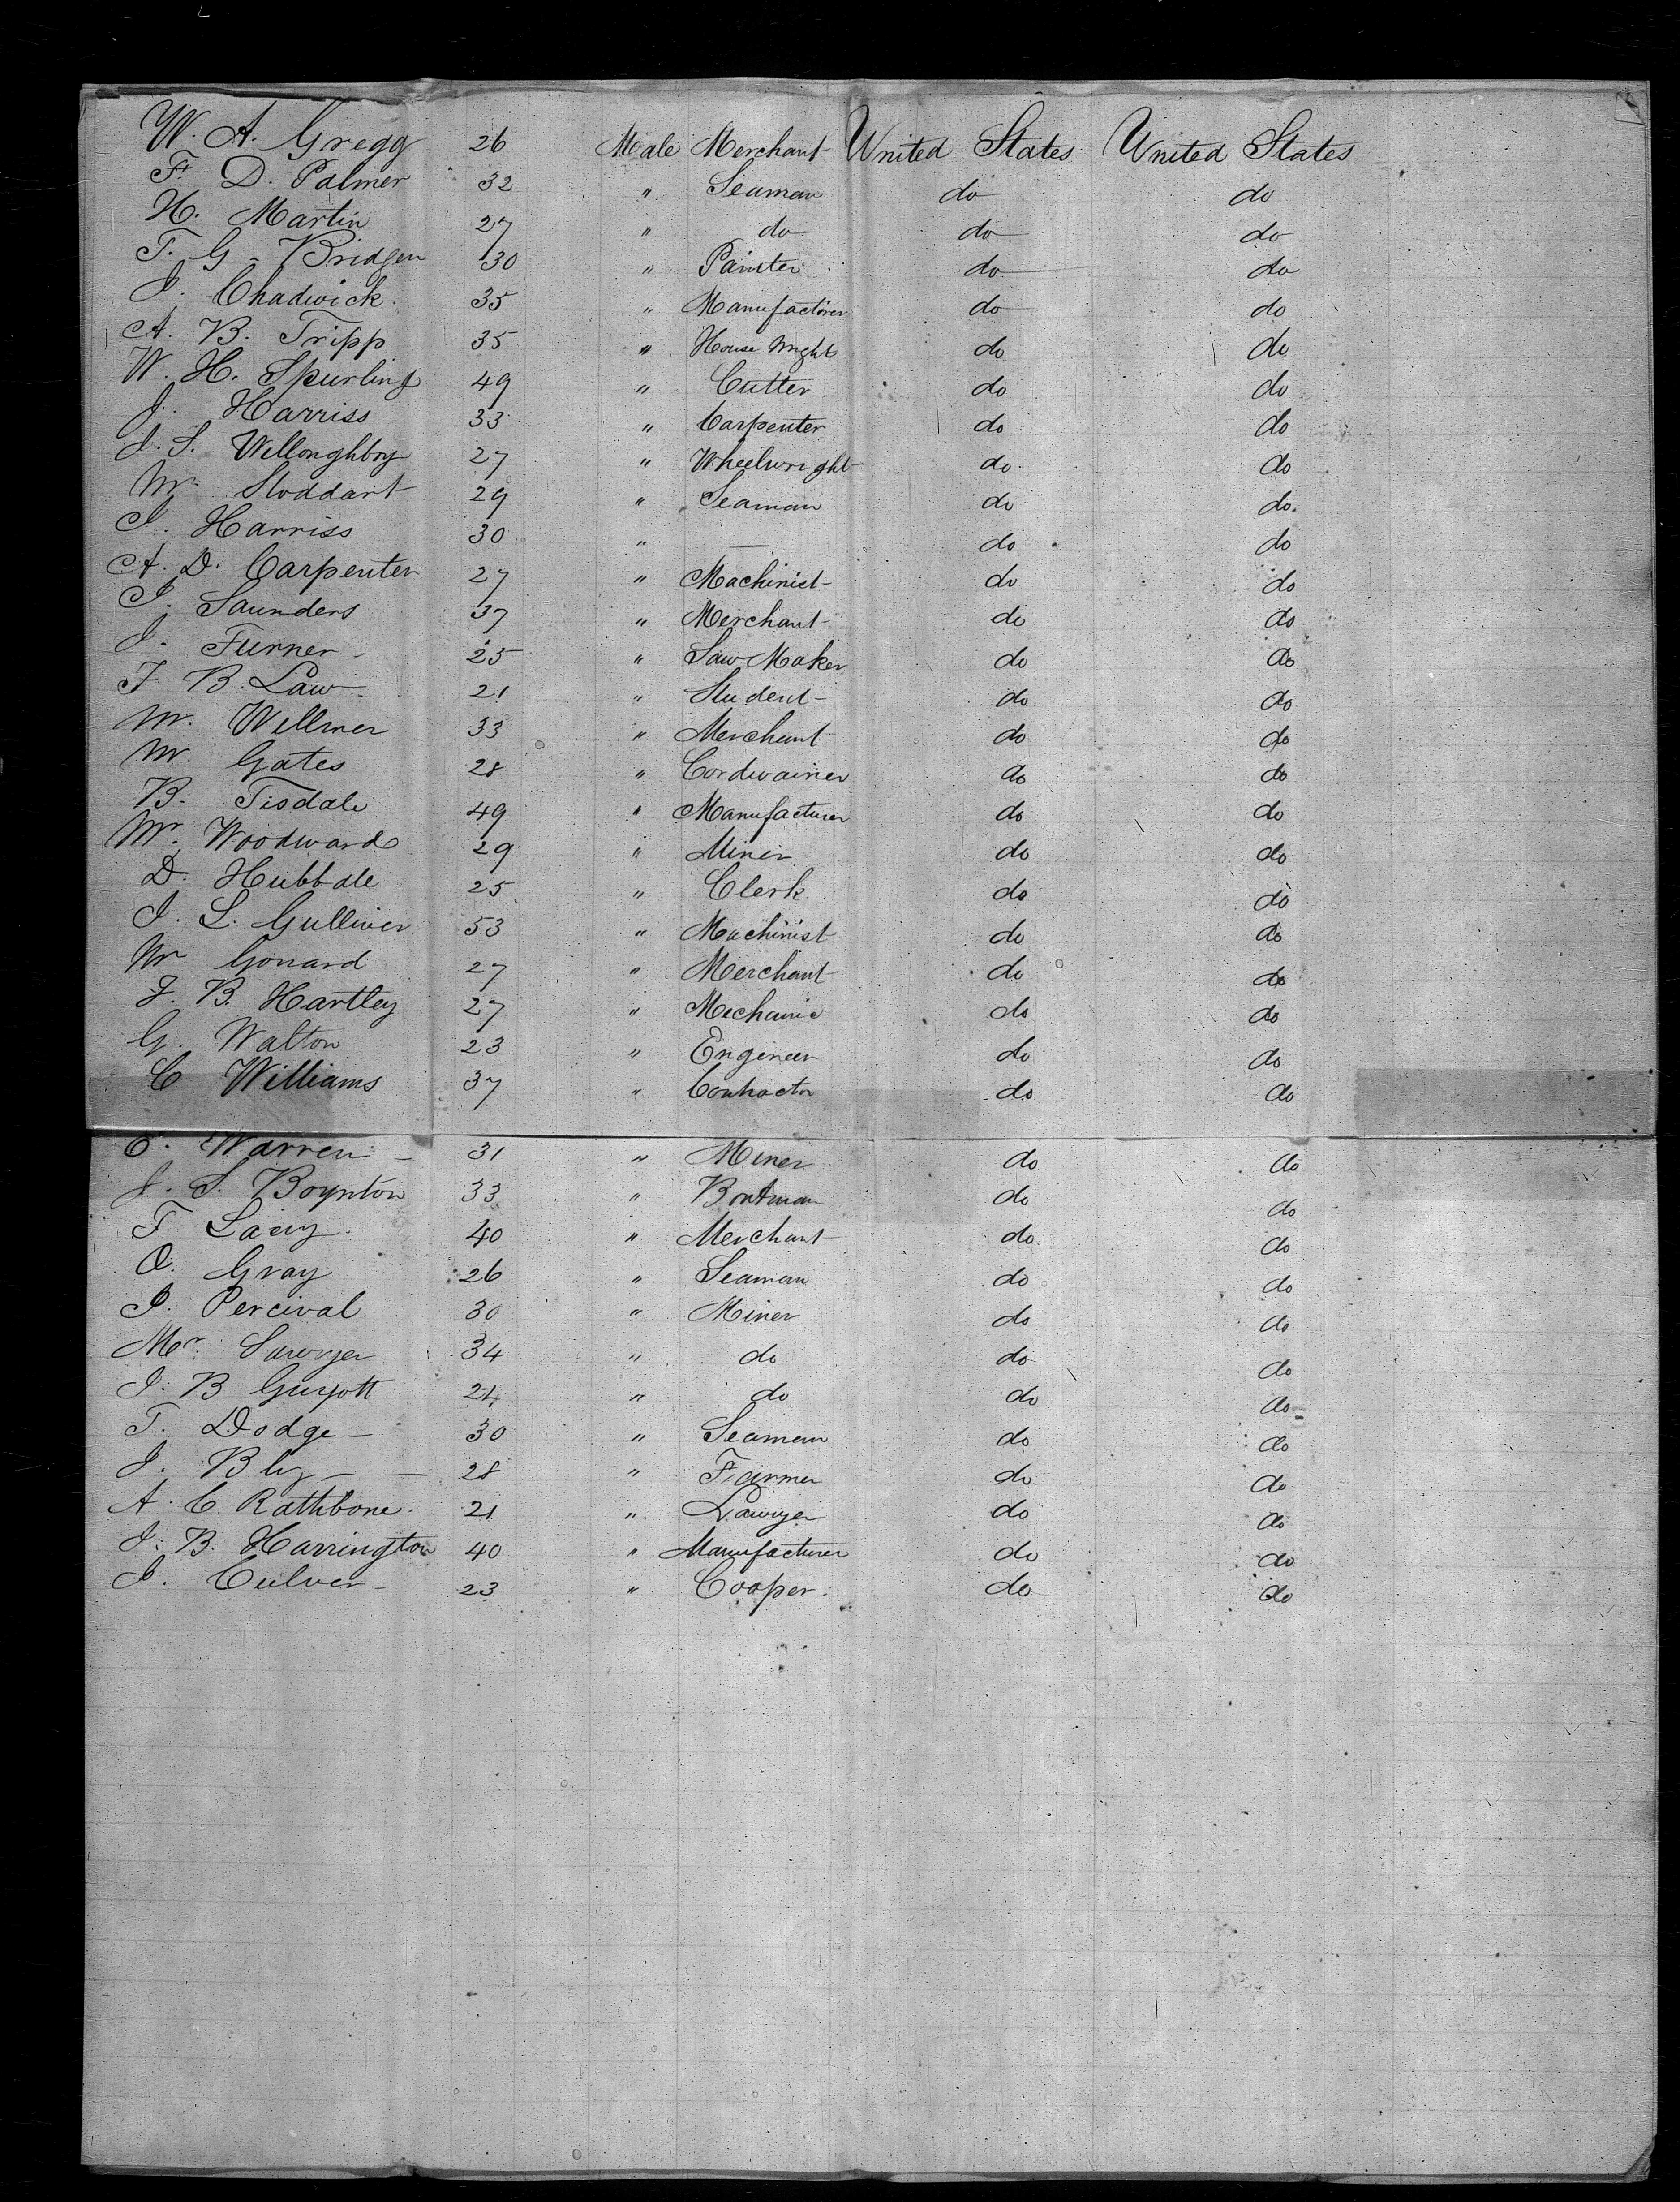 W. A. Gregg 26 Male Merchant United States United States
F. D. Palmer 32 " Seaman do do
H. Martin 27 " do do do
T. G. Bridgen 30 " Painter do do
J. Chadwick 35 " Manufactorer do do
A. B. Tripp 35 " House Wright do do
W. H. Spurling 49 " Cutter do do
J. Harriss 33 " Carpenter do do
J. S. Willoughby 27 " Wheelwright do do
Mr Stoddart 29 " Seaman do do
J. Harriss 30 " — do do
A. D. Carpenter 27 " Machinist do do
J. Saunders 37 " Merchant do do
J. Furner 25 " Saw Maker do do
F B. Law 21 " Student do do
Mr. Willmer 33 " Merchant do do
Mr. Gates 28 " Cordwainer do do
B. Tisdale 49 " Manufacturer do do
Mr. Woodward 29 " Miner do do
D. Hubbale 25 " Clerk do do
J. L. Gulliver 53 " Machinist do do
Mr Gonard 27 " Merchant do do
J. B. Hartley 27 " Mechanic do do
G. Walton 23 " Engineer do do
C Williams 37 " Contractor do do
Warren 31 " Miner do do
J. S. Boynton 33 " Boatman do do
T Lacey 40 " Merchant do do
O. Gray 26 " Seaman do do
J. Percival 30 " Miner do do
Mr. Sawyer 34 " do do do
J. B Guyott 24 " do do do
T. Dodge 30 " Seaman do do
J. Bly 28 " Farmer do do
A. C. Rathbone 21 " Lawyer do do
J. B. Harrington 40 " Manufacturer do do
J. Culver 23 " Cooper do do